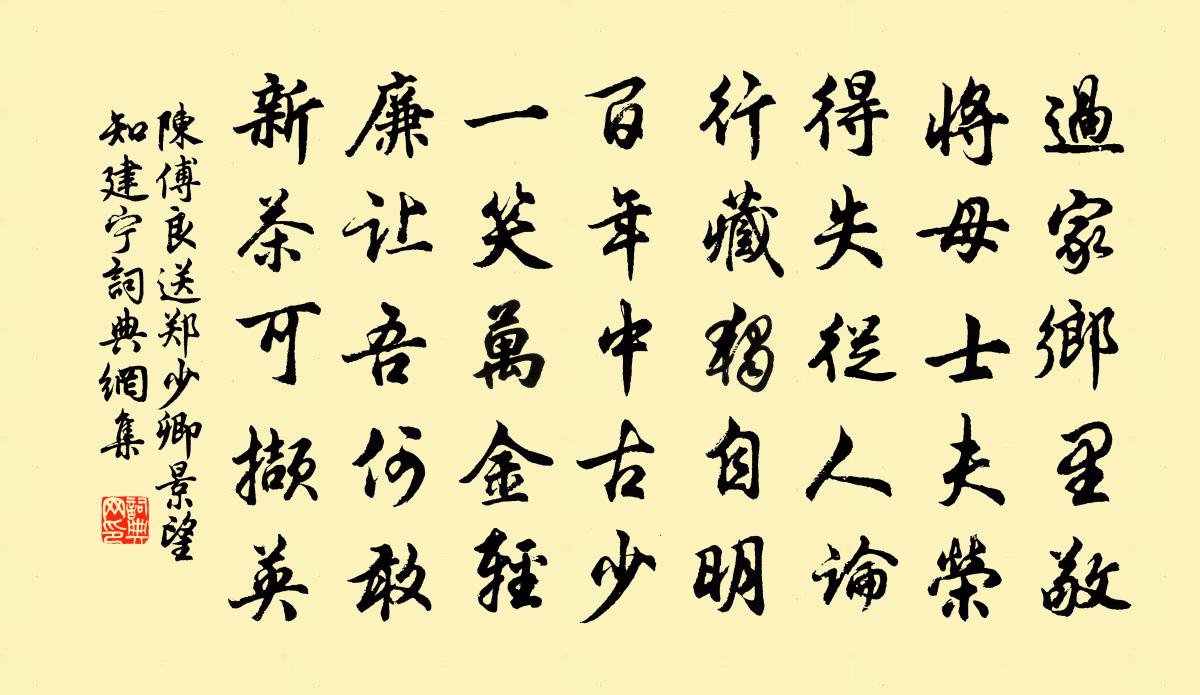 過家鄉里敬
將母士夫榮
得失從人論
行藏獨自明
百年中古少
一笑萬金輕
廉让吾何敢
新茶可擷英
陳傅良送郑少卿景望
知建宁詞典網集
詞典网印